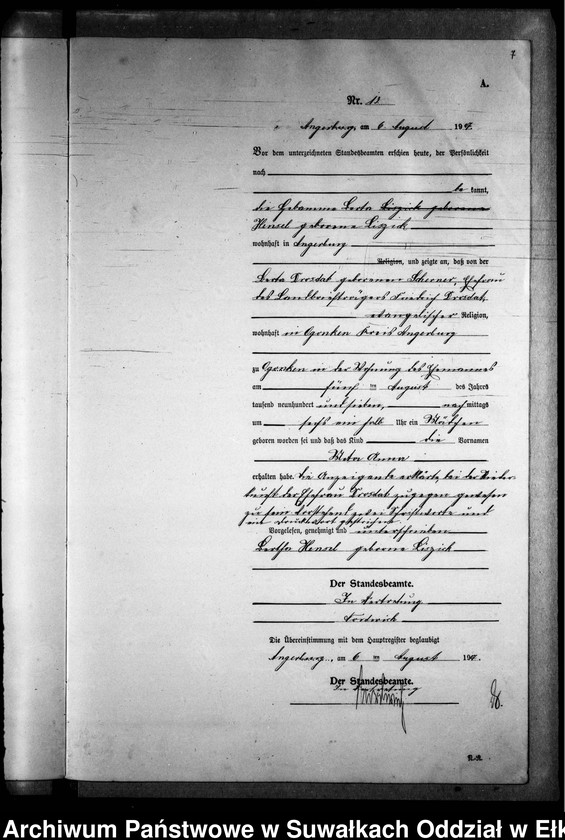 7
A.
Nr. 13
Angerburg, am 6 August 1907.
Vor dem unterzeichneten Standesbeamten erschien heute, der Persönlichkeit
nach
be kannt,
die Hebamme Berta geborene
Hensel geborene Liszick
wohnhaft in Angerburg
Religion, und zeigte an, daß von der
Berta Drosdat geborenen Ehefrau
des Landbriefträgers Friedrich Drosdat,
evangelischer Religion,
wohnhaft in Ogonken Kreis Angerburg
zu Ogonken in der Wohnung des Ehemannes
am fünf ten August des Jahres
tausend neunhundert und sieben, nach mittags
um sechs ein halb Uhr ein Mädchen
geboren worden sei und daß das Kind die Vornamen
Meta Anna
erhalten habe. Die Anzeigende erklärte, bei der Nieder-
kunft der Ehefrau Drosdat zugegen gewesen
zu sein. Vorstehend zwei Schriftworte und
ein Druckwort gestrichen.
Vorgelesen, genehmigt und unterschrieben
Bertha Hensel geborene Liszick
Der Standesbeamte.
In Vertretung
Die Übereinstimmung mit dem Hauptregister beglaubigt
Angerburg, am 6 ten August 1907.
Der Standesbeamte.
In Vertretung
N.-R.
Archiwum Państwowe w Suwałkach Oddział w Ełk